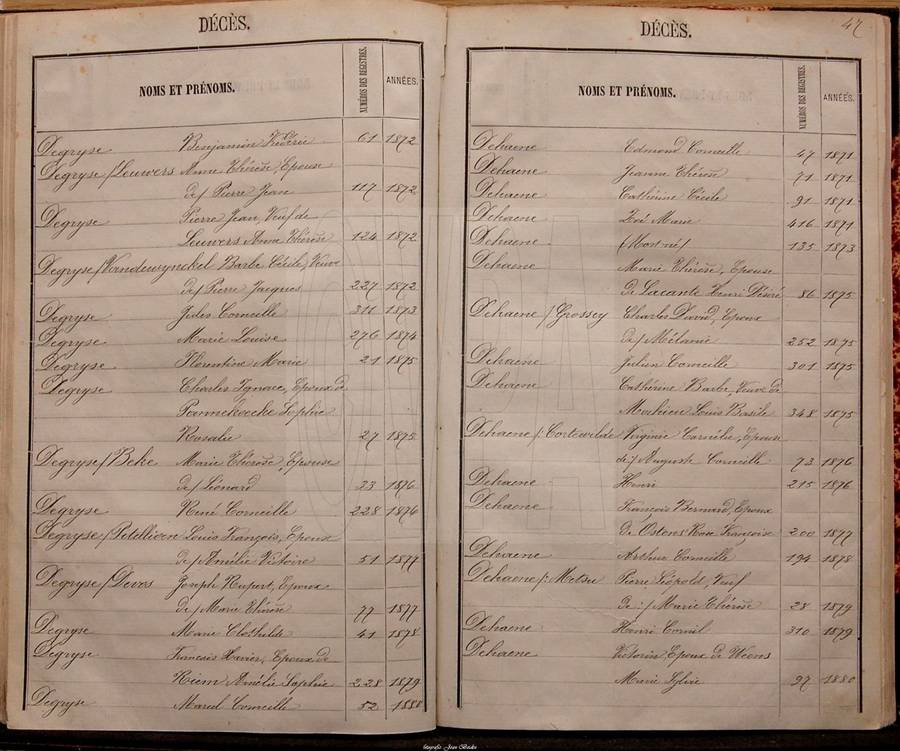 DÉCÈS.
NOMS ET PRÉNOMS. NUMÉROS DES REGISTRES. ANNÉES.
Degryse Benjamin Fréderic 61 1872
Degryse/Leuwers Anne Thérèse, Epouse
de/ Pierre Jean 117 1872
Degryse Pierre Jean, Veuf de
Leuwers Anne Thérèse 124 1872
Degryse/Vandewynckel Barbe Cécile, Veuve
de/ Pierre Jacques 227 1872
Degryse Jules Corneille 311 1873
Degryse Marie Louise 276 1874
Degryse Florentine Marie 21 1875
Degryse Charles Ignace, Epoux de
Pannekoecke Sophie
Rosalie 27 1875
Degryse/Beke Marie Thérèse, Epouse
de/ Léonard 23 1876
Degryse René Corneille 228 1876
Degryse/Petillioen Louis François, Epoux
de/ Amélie Victoire 51 1877
Degryse/Devos Joseph Rupert, Epoux
de/ Marie Thérèse 77 1877
Degryse Marie Clothilde 41 1878
Degryse François Xavier, Epoux de
Riem Amélie Sophie 228 1879
Degryse Marcel Corneille 52 1880
47
DÉCÈS.
NOMS ET PRÉNOMS. NUMÉROS DES REGISTRES. ANNÉES.
Dehaene Edmond Corneille 47 1871
Dehaene Jeanne Thérèse 71 1871
Dehaene Cathérine Cécile 91 1871
Dehaene Zoé Marie 416 1871
Dehaene (Mort né) 135 1873
Dehaene Marie Thérèse, Epouse
de Lacante Henri Désiré 86 1875
Dehaene/Grossey Charles David, Epoux
de/ Mélanie 252 1875
Dehaene Julien Corneille 301 1875
Dehaene Cathérine Barbe, Veuve de
Mathieu Louis Basile 348 1875
Dehaene/Cortewilde Virginie Cornélie, Epouse
de/ Auguste Corneille 73 1876
Dehaene Henri 215 1876
Dehaene François Bernard, Epoux
de Ostens Rose Françoise 200 1877
Dehaene Arthur Corneille 194 1878
Dehaene/Metsu Pierre Léopold, Veuf
de/ Marie Thérèse 28 1879
Dehaene Henri Cornil 310 1879
Dehaene Victorin, Epoux de Weens
Marie Sylvie 97 1880